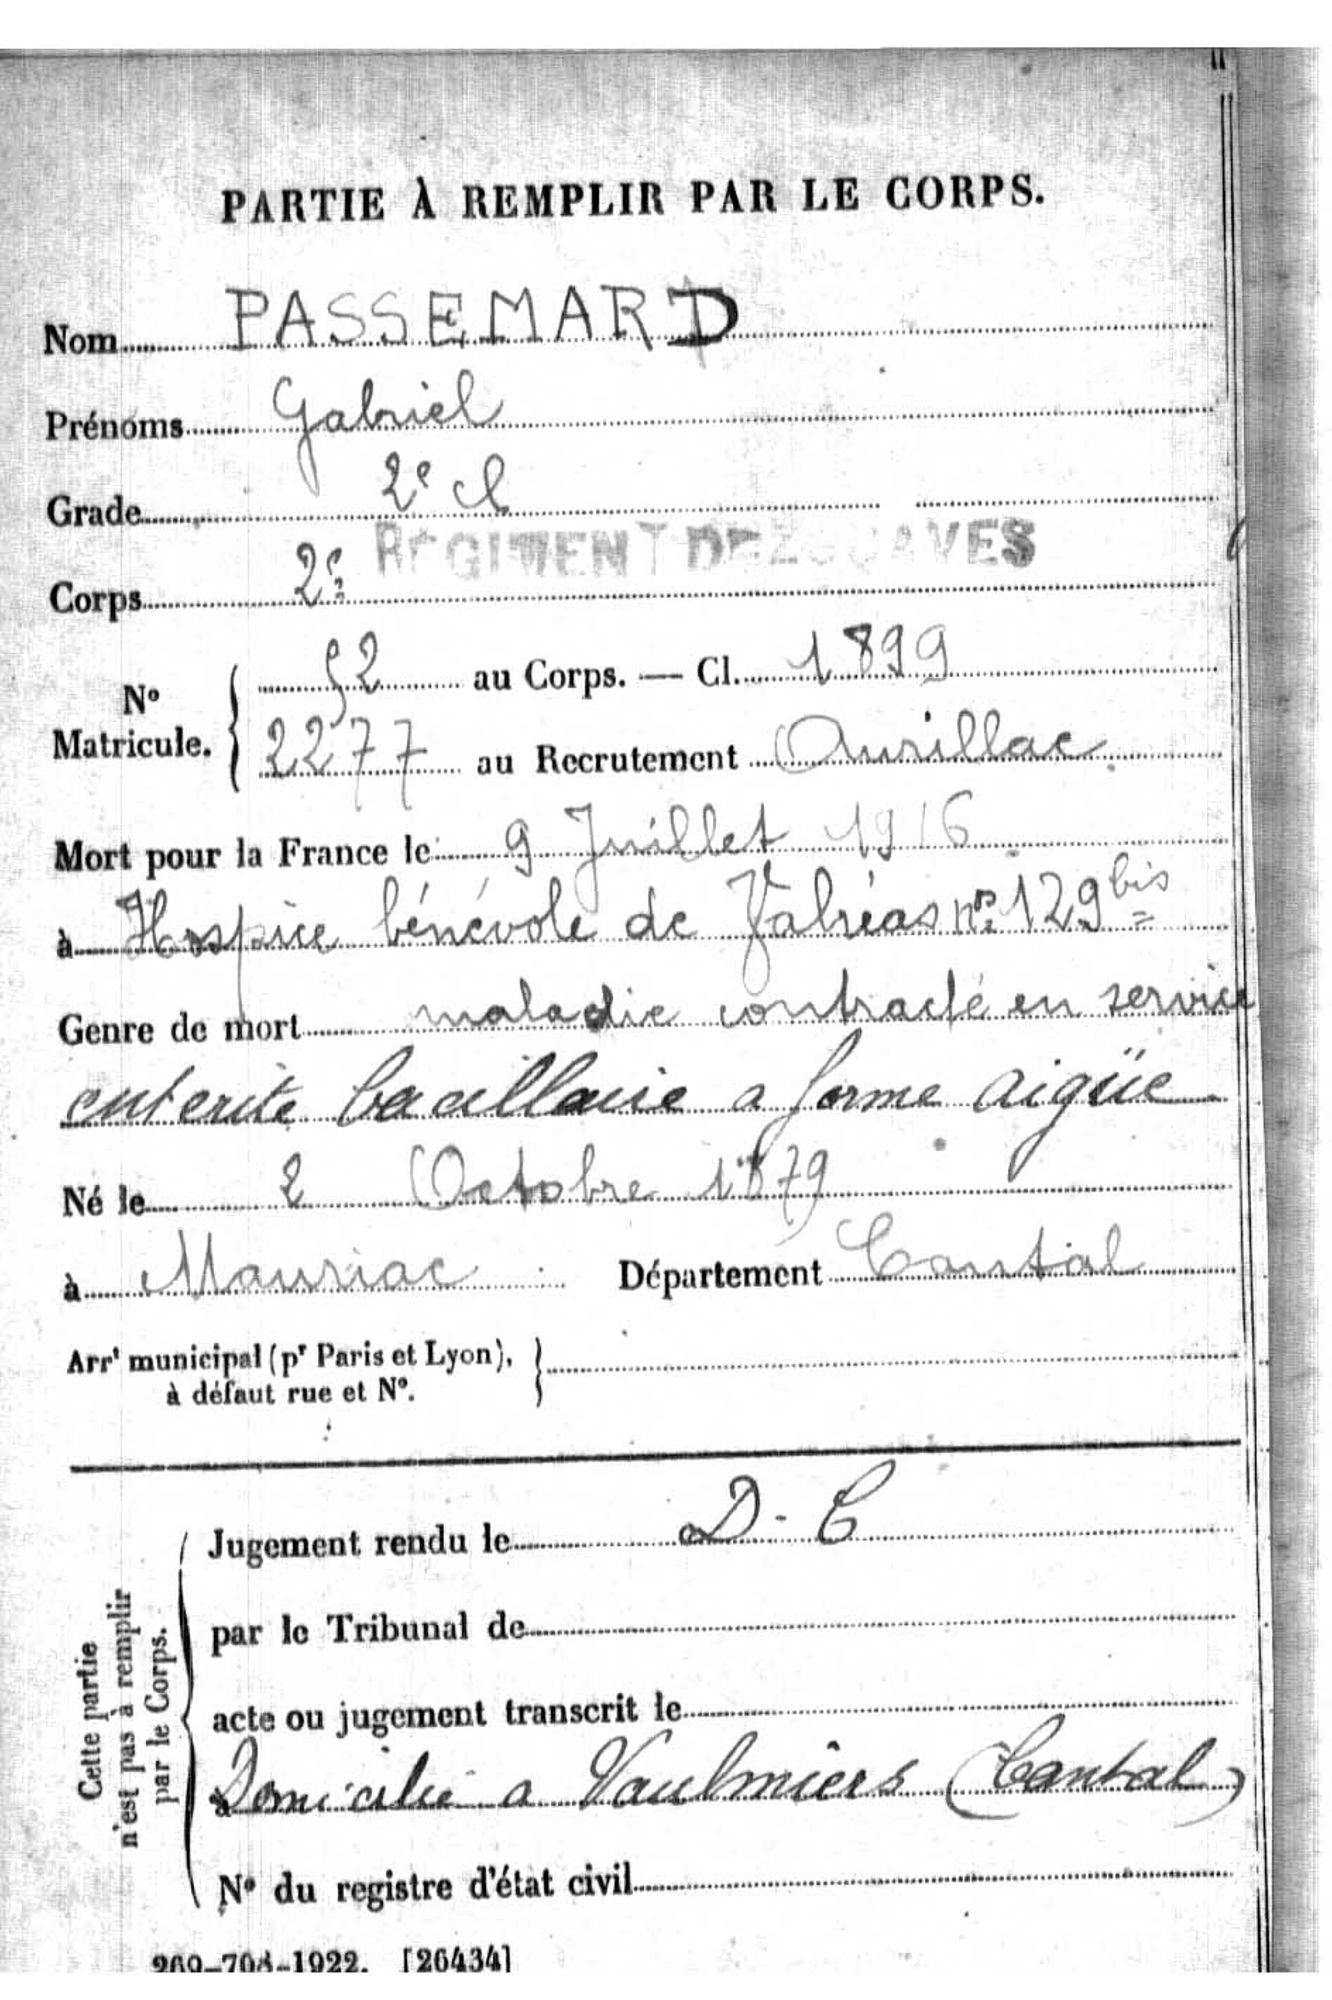 PARTIE À REMPLIR PAR LE CORPS.
Nom PASSEMARD
Prénoms Gabriel
Grade 2e cl
RÉGIMENT DE ZOUAVES
Corps 2e
N° Matricule. 52 au Corps. — Cl. 1899
2277 au Recrutement Aurillac
Mort pour la France le 9 Juillet 1916
à Hospice bénévole de Valréas n° 129 bis
Genre de mort maladie contracté en service
enterite bacillaire a forme aigüe
Né le 2 Octobre 1879
à Mauriac Département Cantal
Arrt municipal (pr Paris et Lyon),
à défaut rue et N°.
Cette partie
n'est pas à remplir
par le Corps.
Jugement rendu le D-C
par le Tribunal de
acte ou jugement transcrit le
Domicilié a Vaulmiers (Cantal)
N° du registre d'état civil
269-708-1922. [26434]